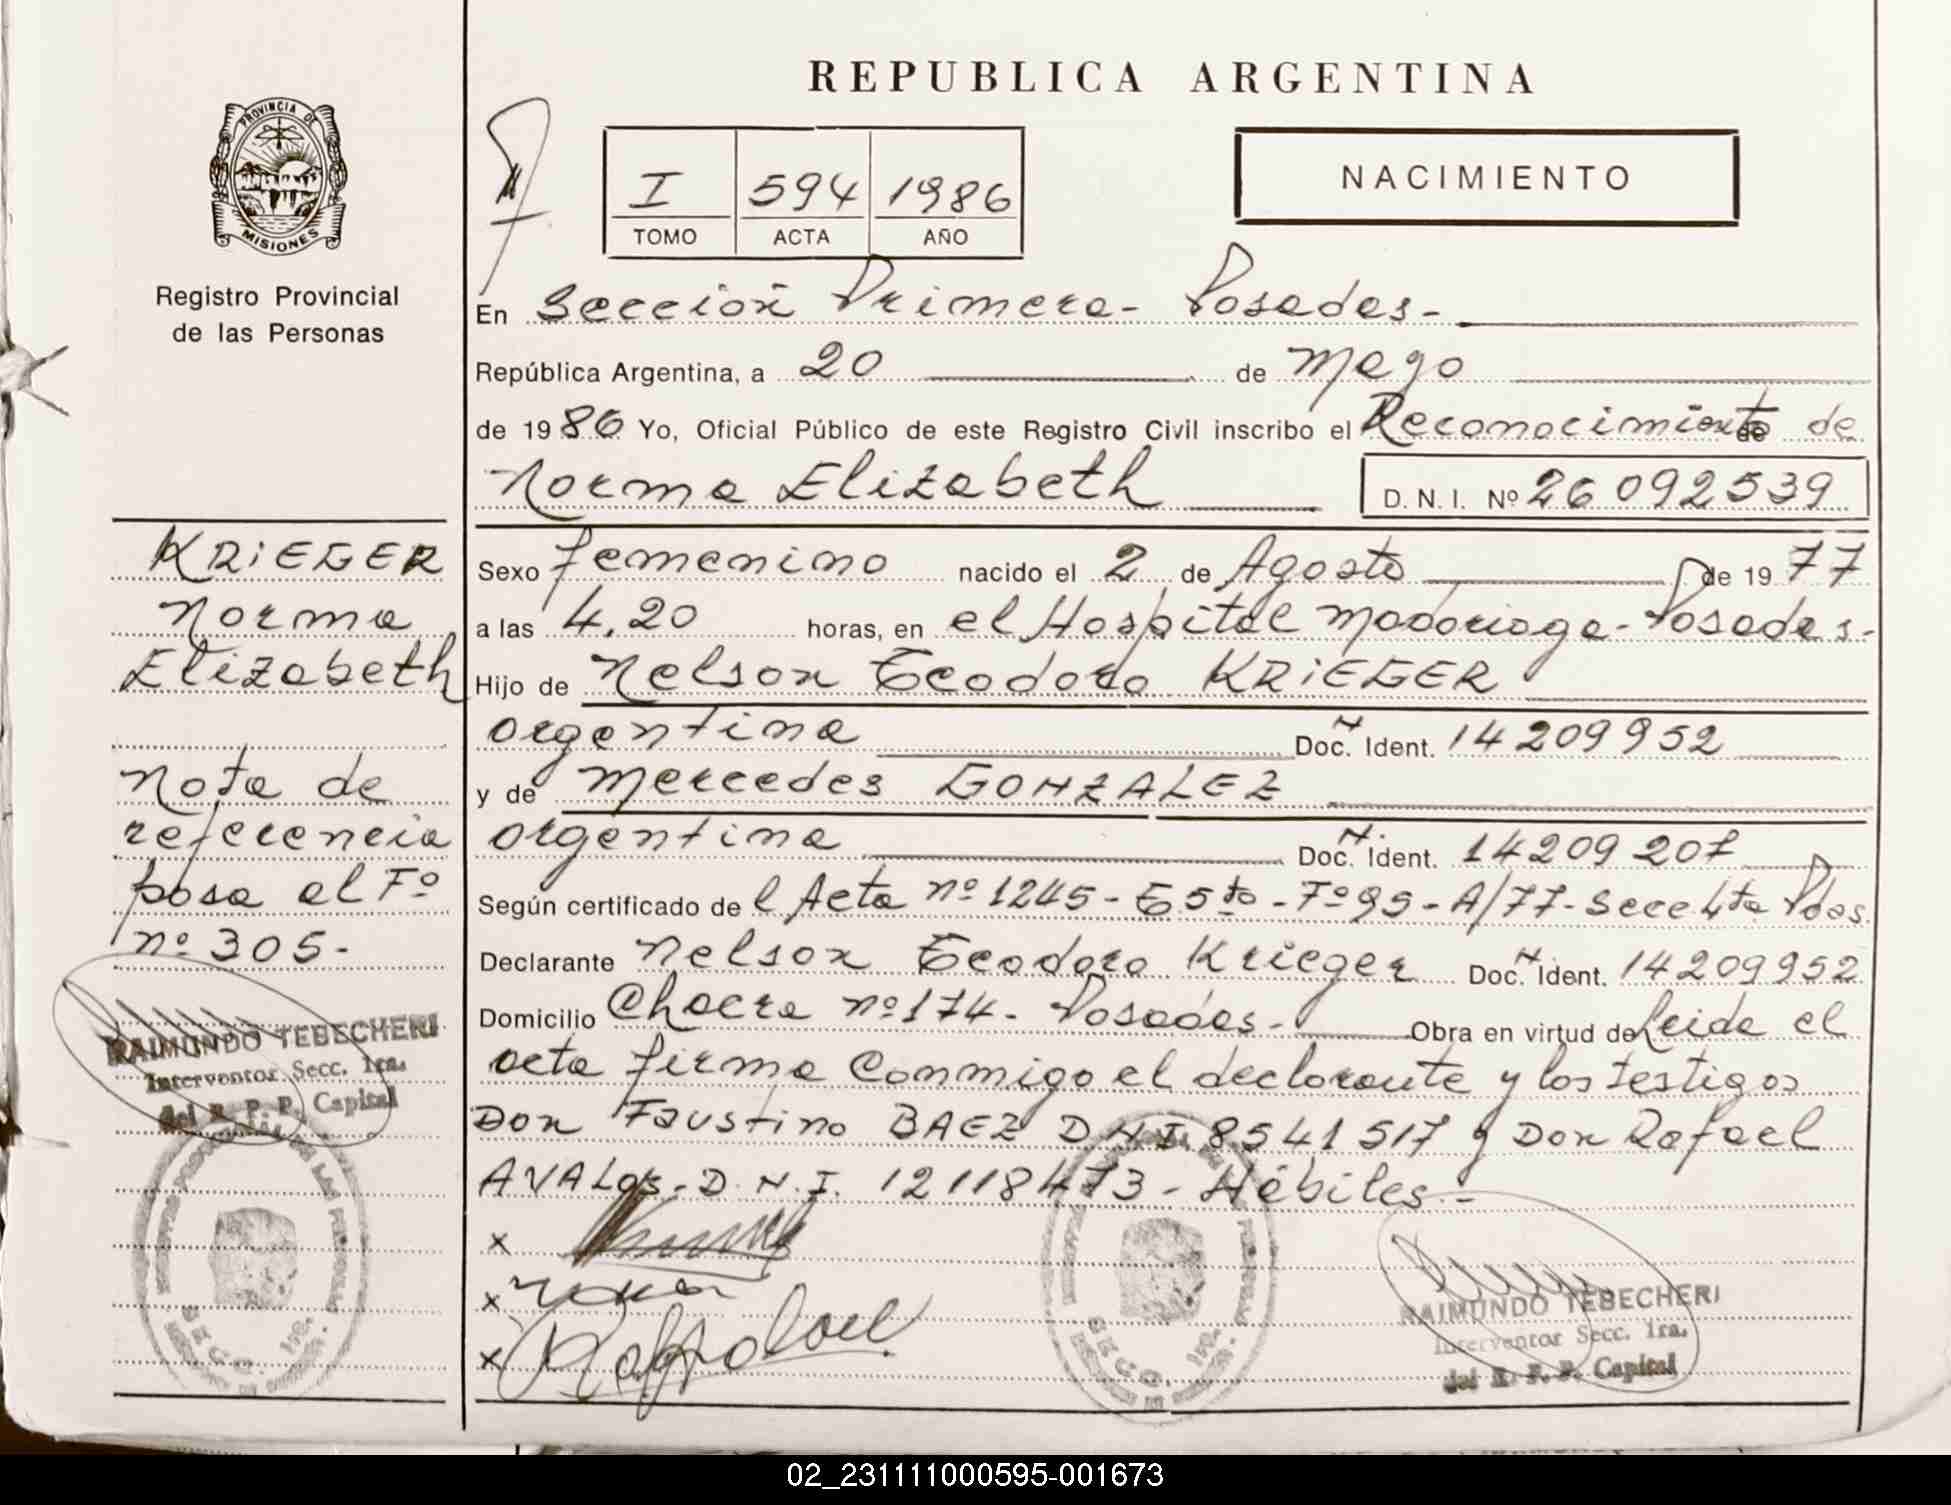 REPUBLICA ARGENTINA
PROVINCIA DE
MISIONES
Registro Provincial
de las Personas
I 594 1986
TOMO ACTA AÑO
NACIMIENTO
En Sección Primera - Posadas -
República Argentina, a 20 de Mayo
de 1986 Yo, Oficial Público de este Registro Civil inscribo el Reconocimiento de
Norma Elizabeth D. N. I. Nº 26 092539
KRIEGER
Norma
Elizabeth
Nota de
referencia
pasa al Fº
nº 305-
RAIMUNDO TEBECHERI
Interventor Secc. 1ra.
del R. P. P. Capital
Sexo femenino nacido el 2 de Agosto de 1977
a las 4,20 horas, en el Hospital Madariaga - Posadas -
Hijo de Nelson Teodoro KRIEGER
argentina Doc. Ident. 14 209 952
y de Mercedes GONZALEZ
argentina Doc. Ident. 14209 207
Según certificado de l Acta nº 1245 - T 5to - Fº 95 - A/77 - Secc 4ta Pdas.
Declarante Nelson Teodoro Krieger Doc. Ident. 14209952
Domicilio Chacra nº 174 - Posadas - Obra en virtud de Leida el
acta firma conmigo el declarante y los testigos
Don Faustino BAEZ D N I 8541 517 y Don Rafael
AVALOS - D. N. I. 12118473 - Hábiles -
x
x
x
RAIMUNDO TEBECHERI
Interventor Secc. 1ra.
del R. P. P. Capital
02_231111000595-001673